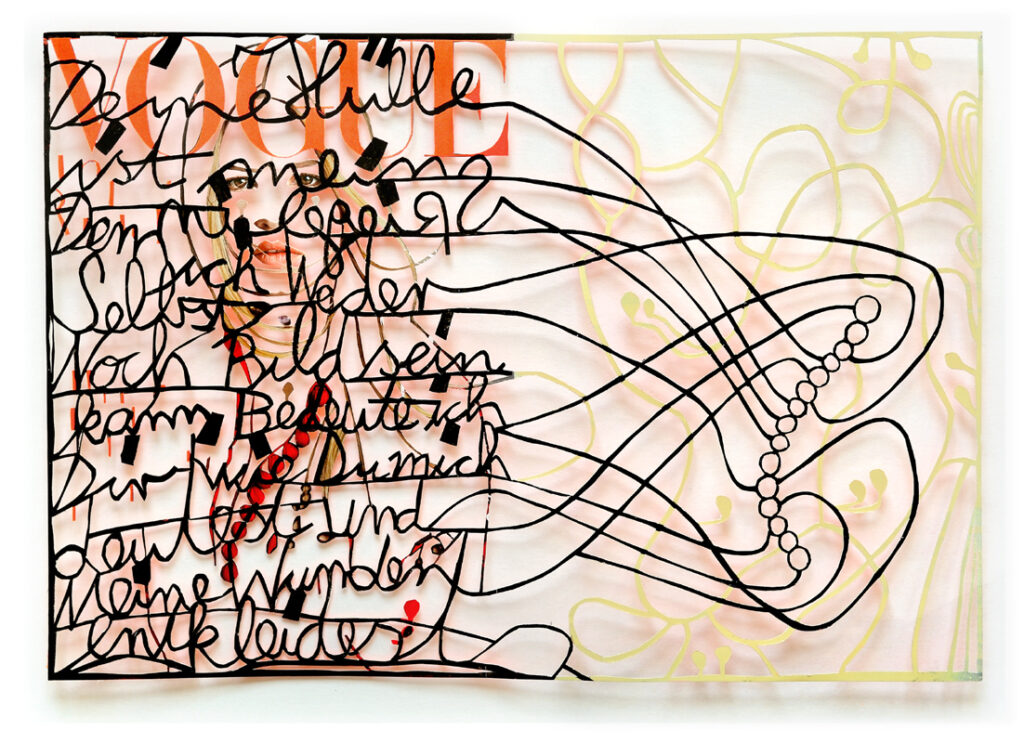 VOGUE
Deine Hülle
ist mein
Denn
ich
Selbst Weder
Noch Bild sein
kann Bedeute ich
Dir wie Du mich
deutest Und
Meine Wunden
entkleidest